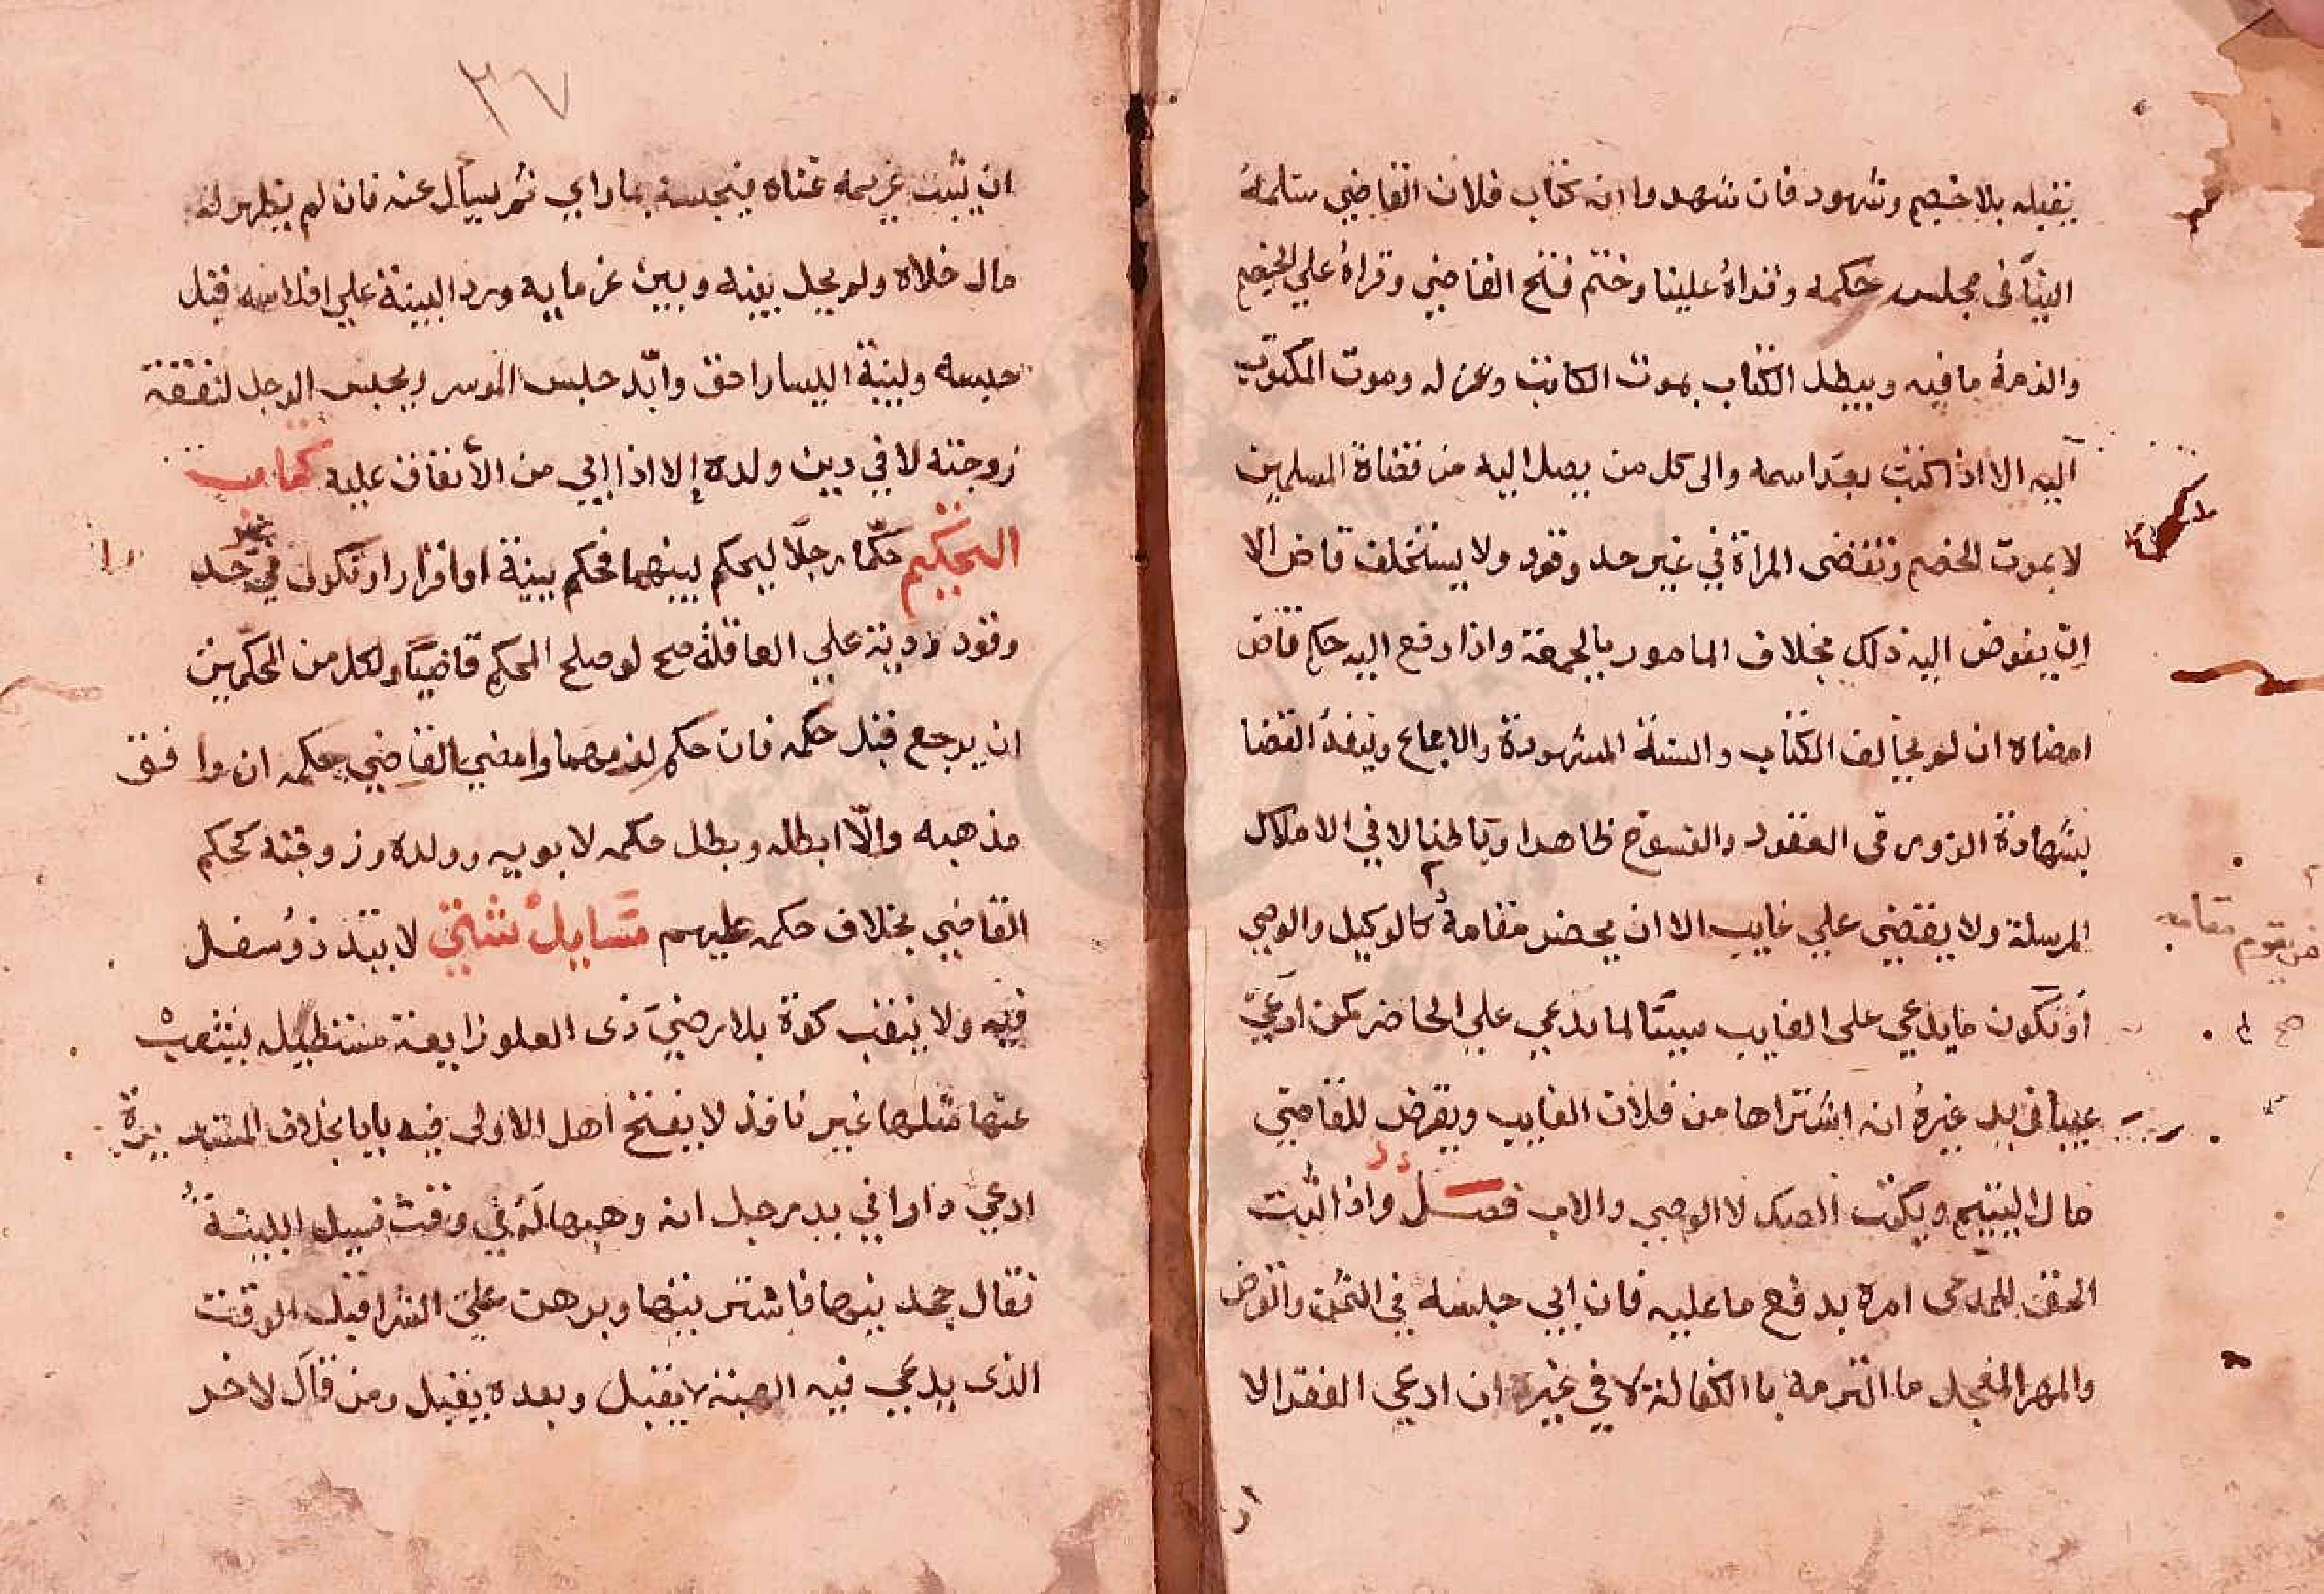 يقبله بلا خصم وشهود فان شهدوا انه كتاب فلان القاضي سلمه
الينا في مجلس حكمه وقراه علينا وختم فتح القاضي وقراه علي الخصم
والزمه ما فيه ويبطل الكتاب بموت الكاتب وعزله وموت المكتوب
اليه الا اذا كتب بعد اسمه والى كل من يصل اليه من قضاة المسلمين
لا بموت الخصم وتقضى المراة في غير حد وقود ولا يستخلف قاض الا
ان يفوض اليه ذلك بخلاف المامور بالجمعة واذا رفع اليه حكم قاض
امضاه ان لم يخالف الكتاب والسنة المشهورة والاجماع وينفذ القضا
بشهادة الزور في العقود والفسوخ ظاهرا وباطنا لا في الاملاك
المرسلة ولا يقضي علي غايب الا ان يحضر مقامه كالوكيل والوصي
من يقوم مقامه
صح
او تكون ما يدعي على الغايب سببا لما يدعي علي الحاضر كمن ادعي
عيبا في يد غيره انه اشتراها من فلان الغايب ويقرض للقاضي
مال اليتيم ويكتب الصك لا الوصي والاب فصل واذا اثبت
الحق للمدعى امره بدفع ما عليه فان ابي حبسه في الثمن والقرض
والمهر المعجل ما التزمه باالكفالة لا في غيره ان ادعي الفقر الا
ان
٣٧
ان يثبت غريمه غناه فيحبسه بما راي ثم يسال عنه فان لم يظهر له
مال خلاه ولم يحل بينه وبين غرمايه ورد البينة علي افلاسه قبل
حبسه وبينة اليسار احق وابد حبس الموسر ويحبس الرجل لنفقة
زوجته لا في دين ولده الا اذا ابي من الانفاق عليه كتاب
التحكيم حكما رجلا ليحكم بينهما فحكم ببينة او اقرار او نكول في غير حد
وقود ودية علي العاقلة صح لو صلح المحكم قاضيا ولكل من المحكمين
ان يرجع قبل حكمه فان حكم لزمهما وامضي القاضي حكمه ان وافق
مذهبه والا ابطله وبطل حكمه لابويه وولده وزوجته كحكم
القاضي بخلاف حكمه عليهم مسايل شتى لا يتد ذو سفل
فيه ولا ينقب كوة بلا رضي ذى العلو زايغة مستطيله ينشعب
عنها مثلها غير نافذ لا يفتح اهل الاولى فيه بابا بخلاف المستديرة
ادعي دارا في يد رجل انه وهبها له في وقت فسيل البينة
فقال جحدنيها فاشتريتها وبرهن علي الشرا قبل الوقت
الذى يدعي فيه الهبة لا يقبل وبعده يقبل ومن قال لاخر